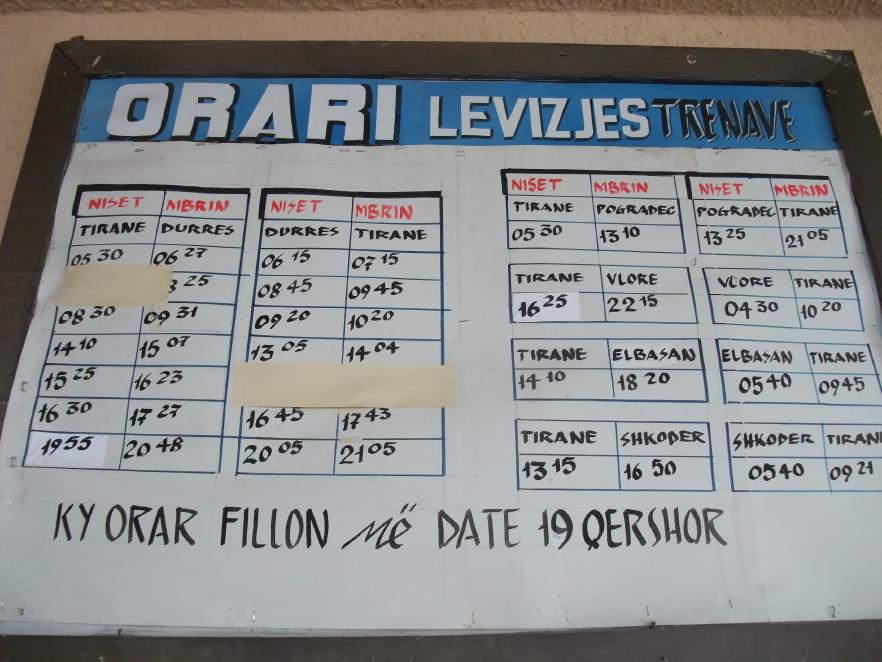 ORARI LEVIZJES TRENAVE
NISET MBRIN
TIRANE DURRES
05 30 06 27
25
08 30 09 31
14 10 15 07
15 25 16 23
16 30 17 27
19 55 20 48
NISET MBRIN
DURRES TIRANE
06 15 07 15
08 45 09 45
09 20 10 20
13 05 14 04
16 45 17 43
20 05 21 05
NISET MBRIN
TIRANE POGRADEC
05 30 13 10
NISET MBRIN
POGRADEC TIRANE
13 25 21 05
TIRANE VLORE
16 25 22 15
VLORE TIRANE
04 30 10 20
TIRANE ELBASAN
14 10 18 20
ELBASAN TIRANE
05 40 09 45
TIRANE SHKODER
13 15 16 50
SHKODER TIRAN
05 40 09 21
KY ORAR FILLON Më DATE 19 QERSHOR